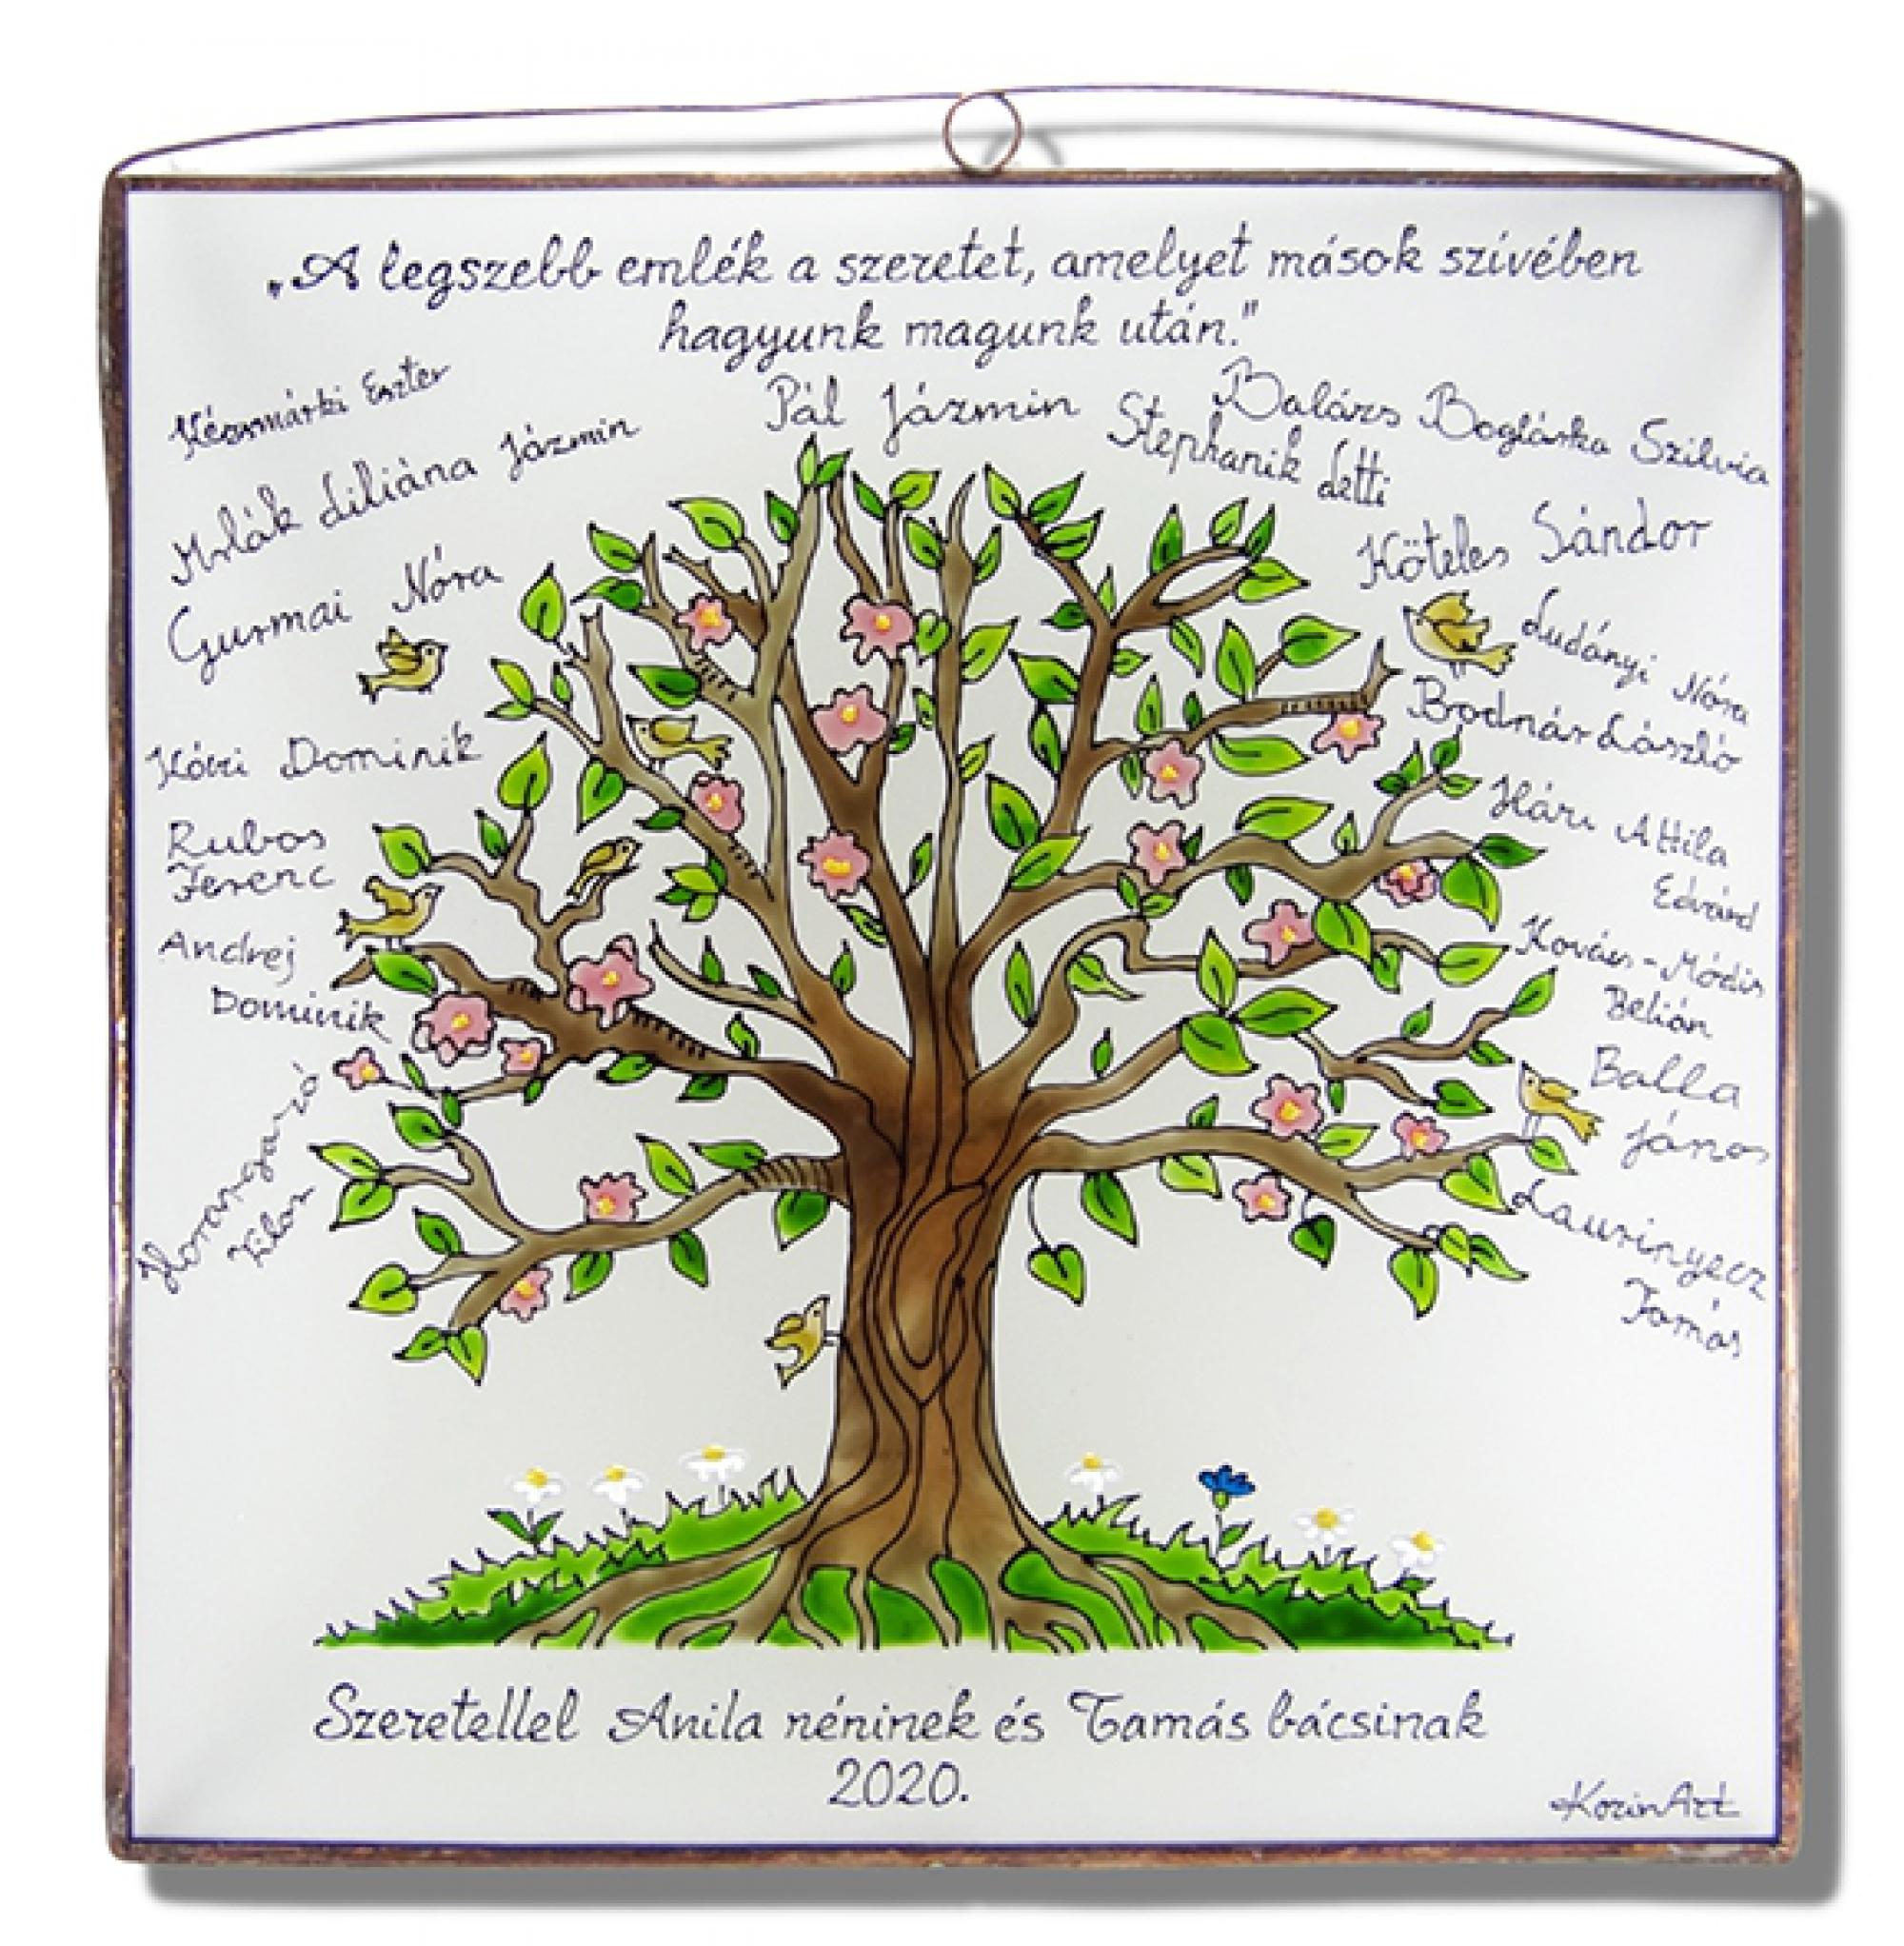 „A legszebb emlék a szeretet, amelyet mások szívében
hagyunk magunk után."
Késmárki Eszter
Mslák Liliána Jázmin
Gurmai Nóra
Kóri Dominik
Rubos
Ferenc
Andrej
Dominik
Pál Jázmin
Stephanik Letti
Balázs Boglárka Szilvia
Köteles Sándor
Ludányi Nóra
Bodnár László
Hári Attila
Edvárd
Kovács-Módis
Belián
Balla
János
Laurinyecz
Tamás
Szeretettel Anila néninek és Tamás bácsinak
2020.
KorinArt